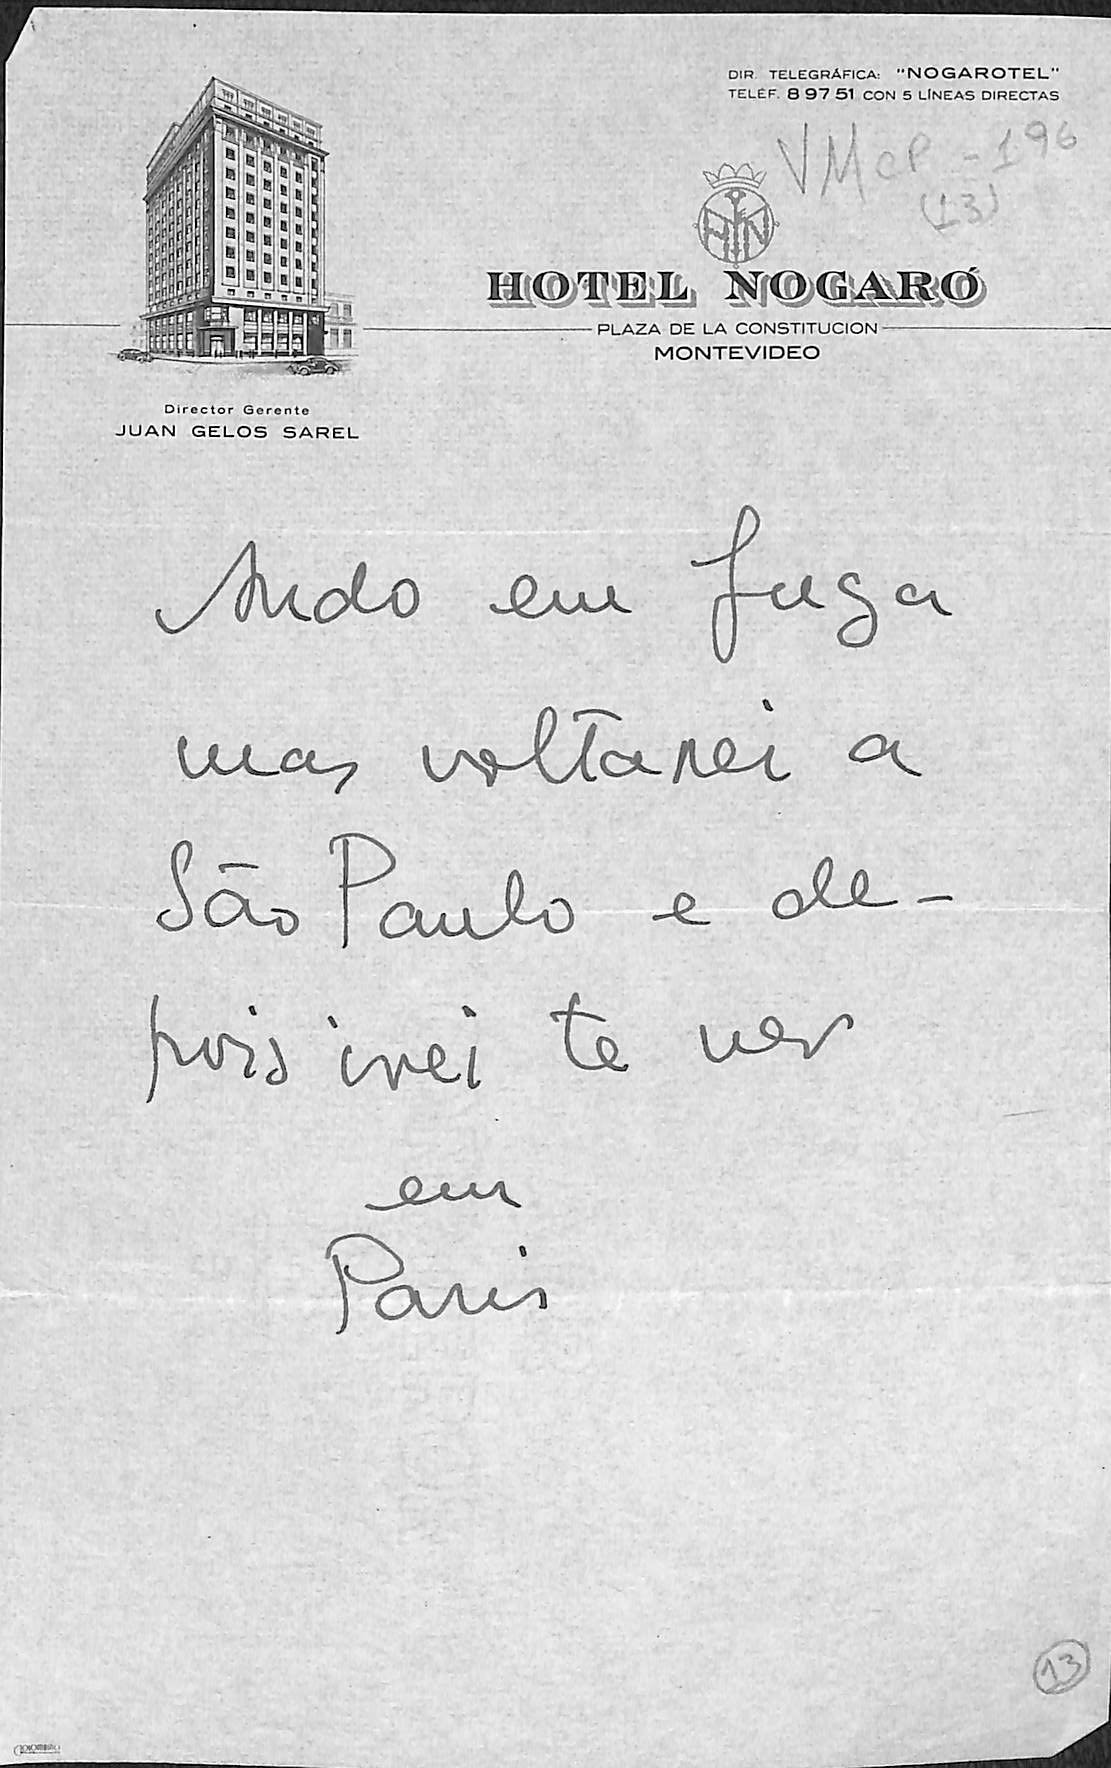 DIR. TELEGRÁFICA: "NOGAROTEL"
TELÉF. 8 97 51 CON 5 LÍNEAS DIRECTAS
VMCP - 196
(13)
HOTEL NOGARÓ
PLAZA DE LA CONSTITUCION
MONTEVIDEO
Director Gerente
JUAN GELOS SAREL
Ando em fuga
mas voltarei a
São Paulo e de-
pois irei te ver
em
Paris
13